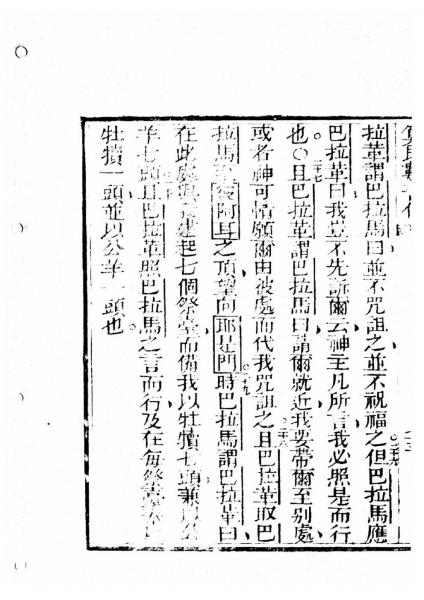 拉革謂巴拉馬曰並不咒詛之並不祝福之但巴拉馬應
巴拉革曰我豈不先訴爾云神主凡所言我必照是而行
也〇且巴拉革謂巴拉馬曰請爾就近我要帶爾至別處
或者神可情願爾由彼處而代我咒詛之且巴拉革取巴
拉馬 阿耳之頂望向耶是門時巴拉馬謂巴拉革曰
在此處與 建起七個祭臺而備我以牡犢七頭兼以公
羊七頭且巴拉革照巴拉馬之言而行及在每祭臺
牡犢一頭並以公羊一頭也